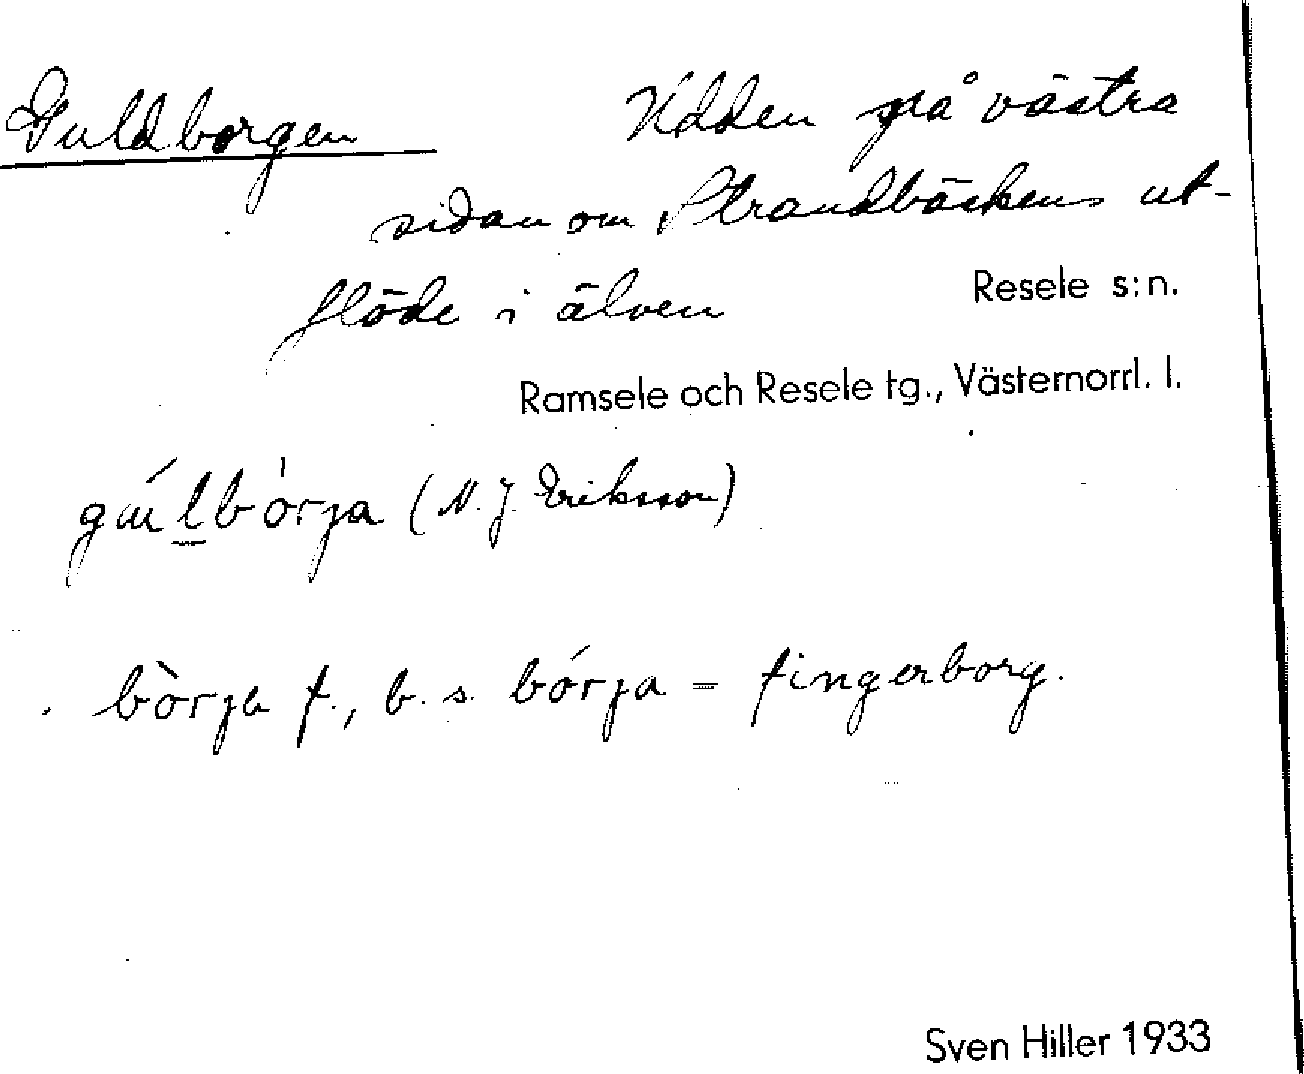 Guldborgen
Udden på västra
sidan om Strandbäckens ut-
flöde i älven
Resele s:n.
Ramsele och Resele tg., Västernorrl. l.
(N. J. Eriksson)
bòrja f., b. s. bórja = fingerborg.
Sven Hiller 1933